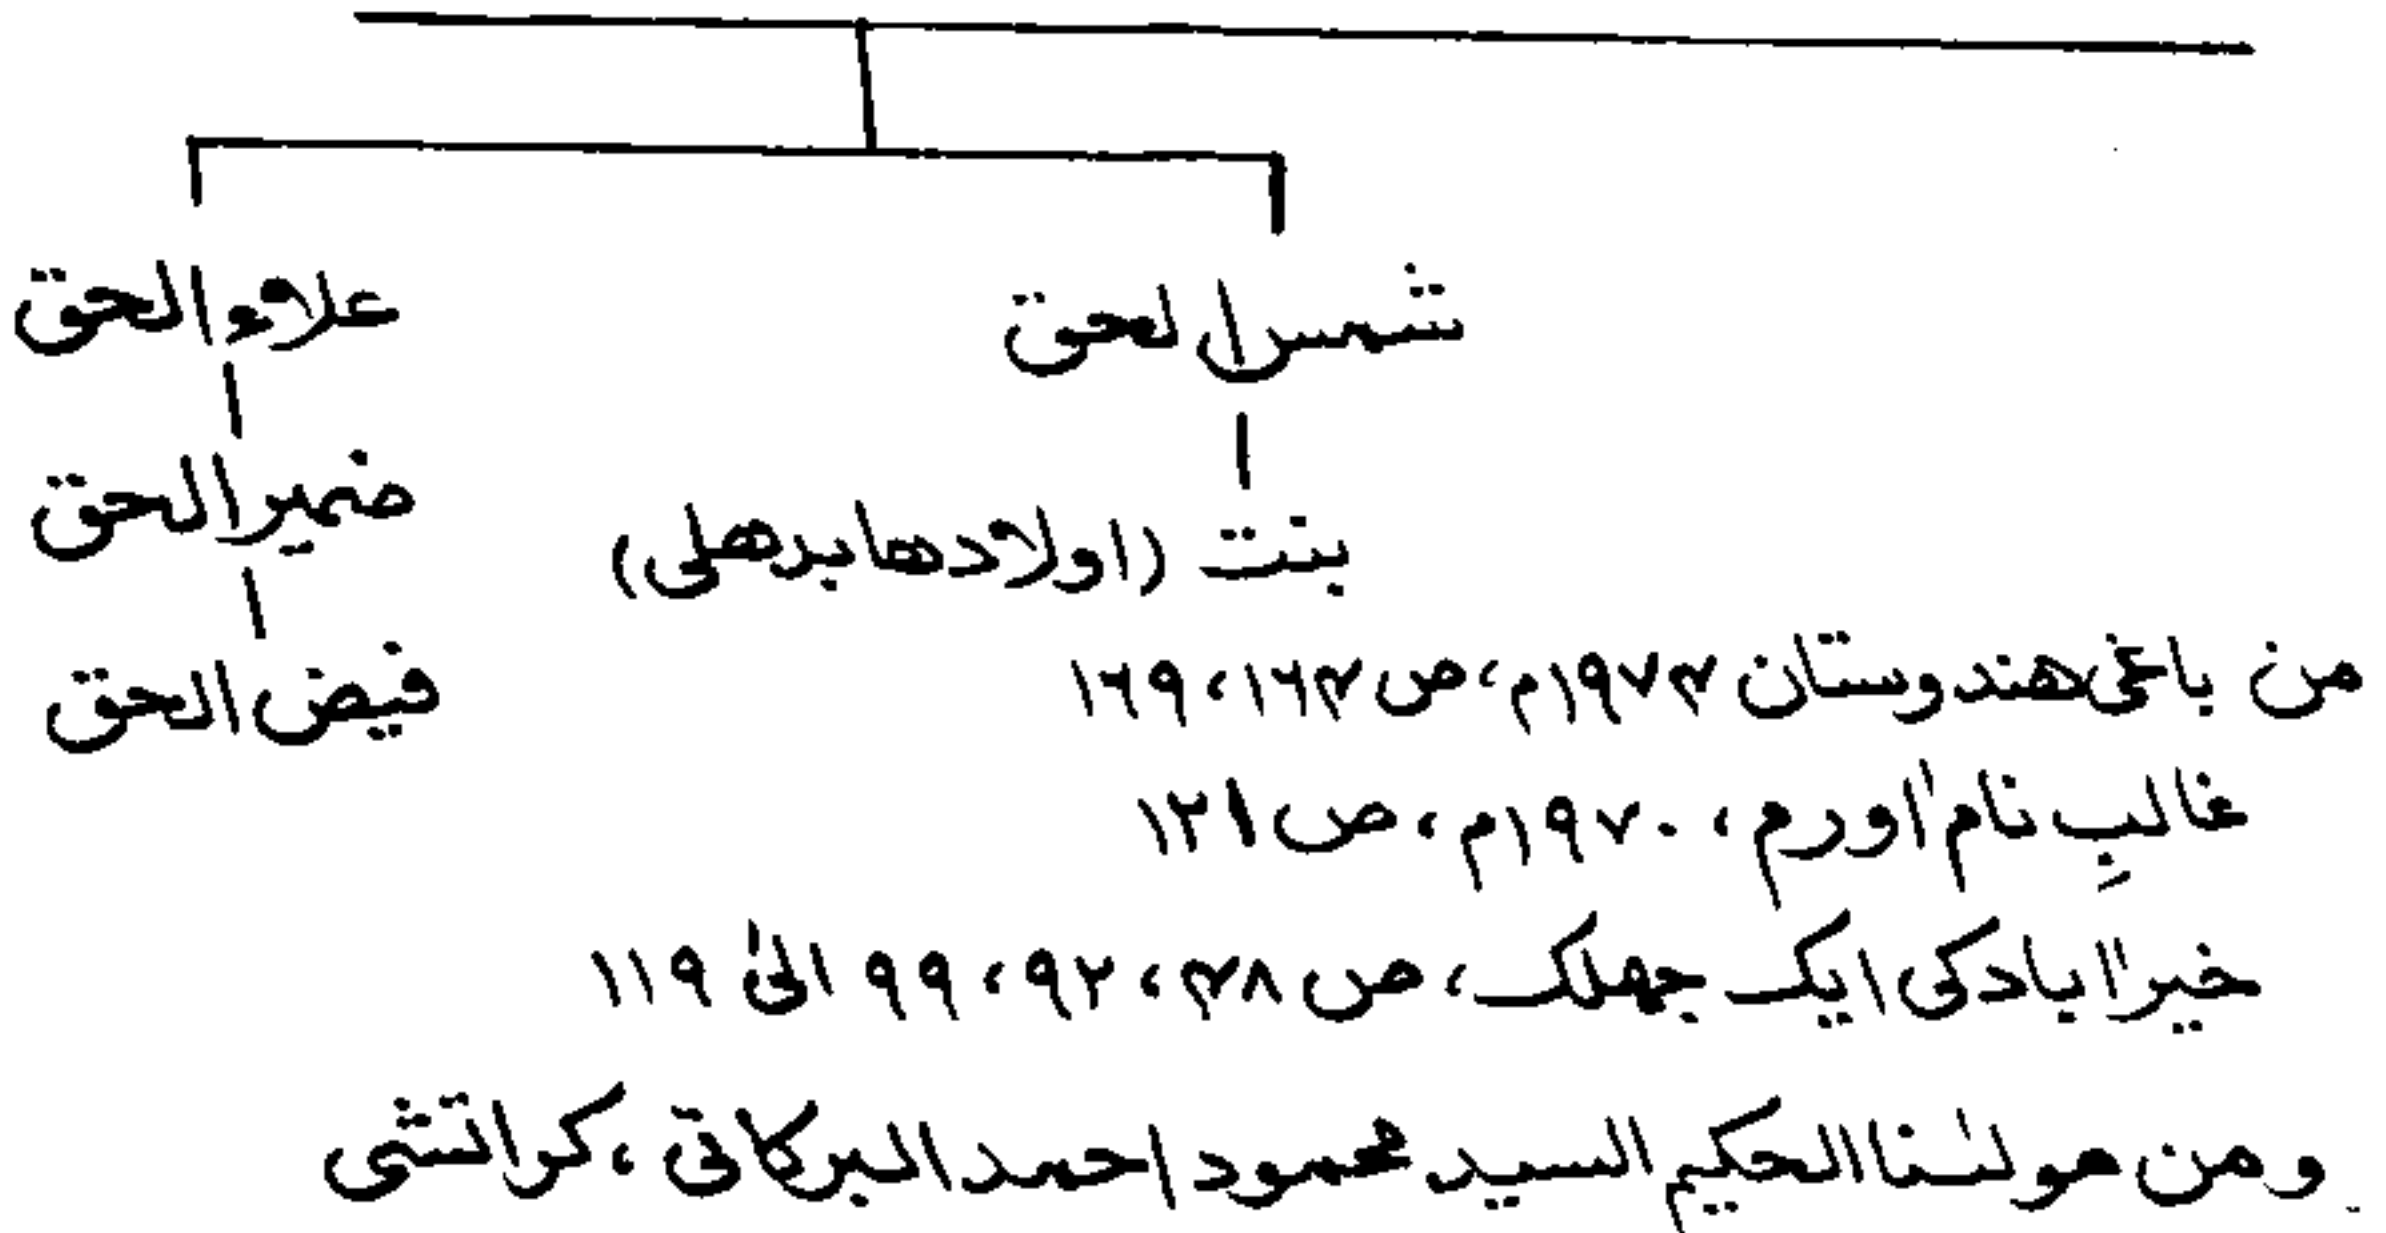 شمس الحق
علاء الحق
بنت (اولادها بدهلی)
ضمیر الحق
فیض الحق
من باغی هندوستان ۱۹۷۴م، ص ۱۶۴، ۱۶۹
غالبِ نام اٰورم، ۱۹۷۰م، ص ۱۲۱
خیر اٰباد کی ایک جھلک، ص ۴۸، ۹۲، ۹۹ الیٰ ۱۱۹
ومن مولٰنا الحکیم السید محمود احمد البرکاتی، کراتشی